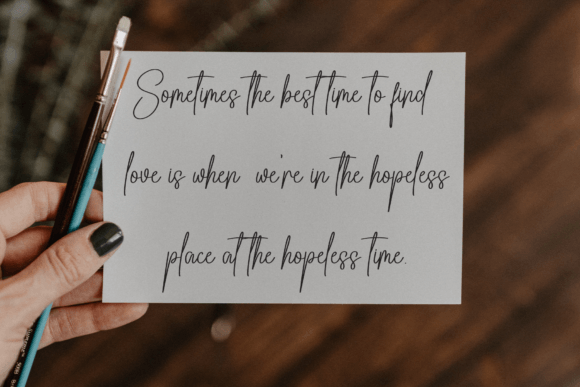 Sometimes the best time to find
love is when we're in the hopeless
place at the hopeless time.